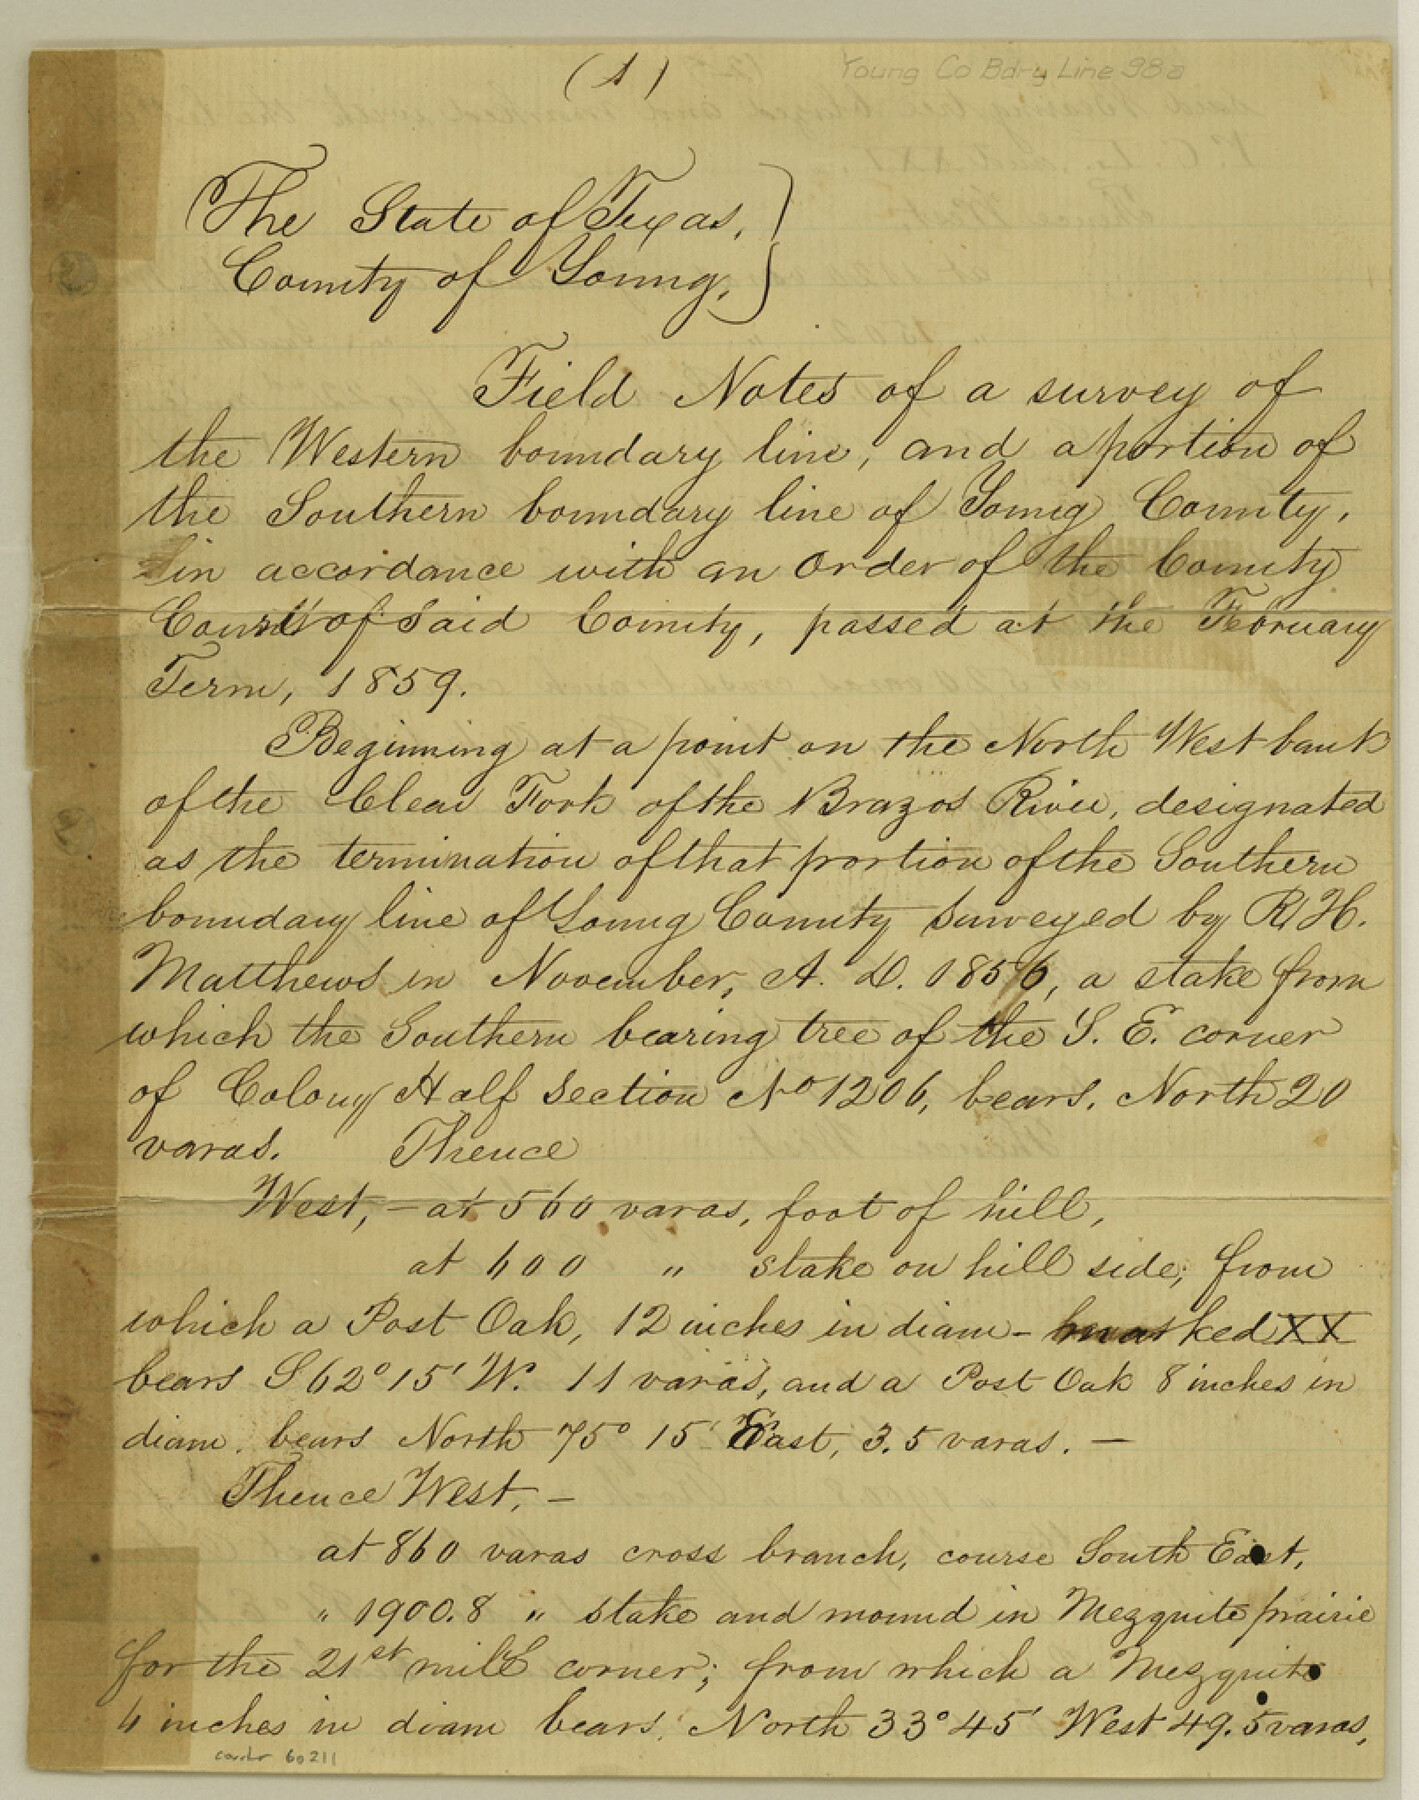 (1)
Young Co Bdry Line 98a
The State of Texas, }
County of Young, }
Field Notes of a survey of
the Western boundary line, and a portion of
the Southern boundary line of Young County,
in accordance with an Order of the County
Court of said County, passed at the February
Term, 1859.
Beginning at a point on the North West bank
of the Clear Fork of the Brazos River, designated
as the termination of that portion of the Southern
boundary line of Young County surveyed by R. H.
Matthews in November, A. D. 1856, a stake from
which the Southern bearing tree of the S. E. corner
of Colony Half Section No 1206, bears, North 20
varas. Thence
West, – at 560 varas, foot of hill,
at 600 " stake on hill side; from
which a Post Oak, 12 inches in diam – marked XX
bears S 62° 15' W. 11 varas, and a Post Oak 8 inches in
diam. bears North 75° 15' East, 3.5 varas. –
Thence West, –
at 860 varas cross branch, course South East,
" 1900.8 " stake and mound in Mezquite prairie
for the 21st mile corner; from which a Mezquite
4 inches in diam bears, North 33° 45' West 49.5 varas,
counter 60211